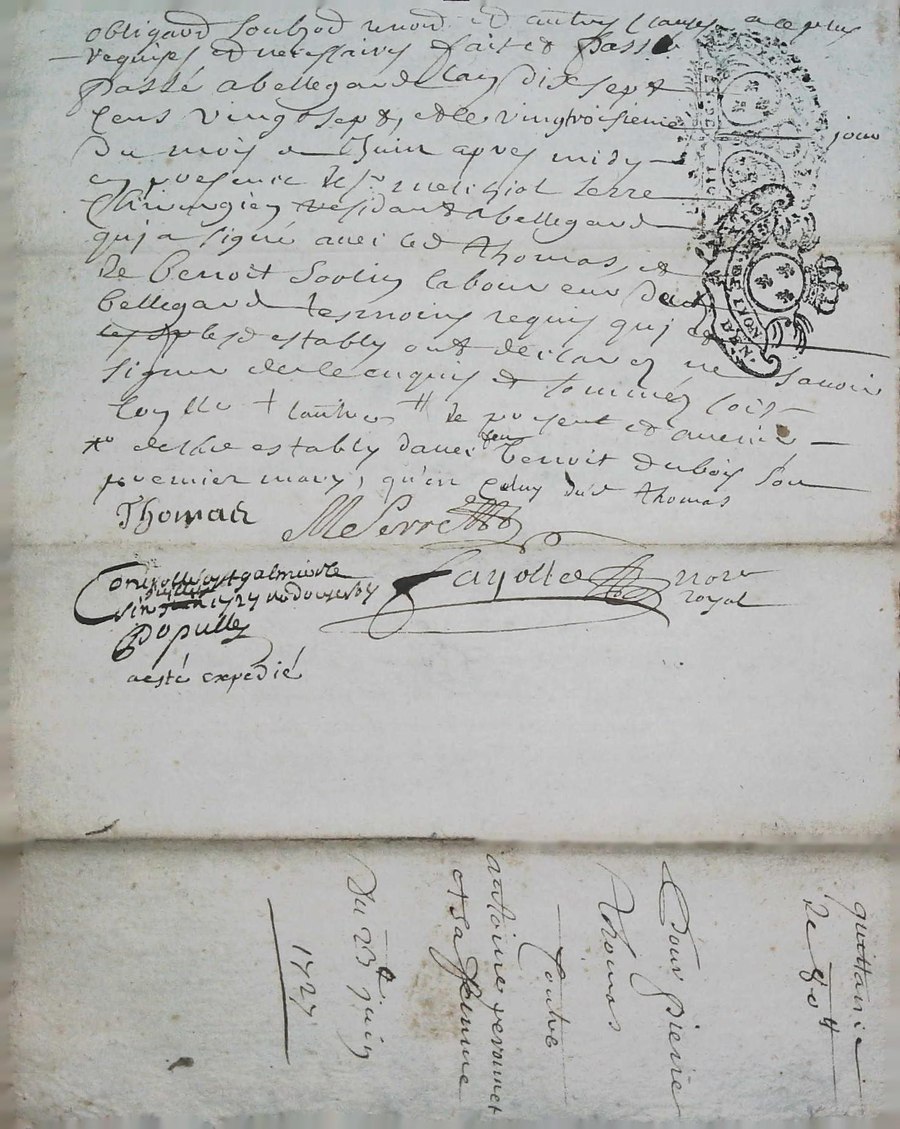 obligaõns Soubzõns renonõns et autres Clauses a ce plus
requises et necessaires fait et passé
passé a bellegarde lan dix sept
Cens vingt sept, et le vingtroisieme jour
du mois de Juin apres midy
en presence de sr melchiol Serre
Chirurgien residant a bellegarde
quj a signé avec led thomas, et
de benoit laboureur dud
bellegarde tesmoins requis quj et
lesd establys ont declarez ne scavoir
signer de ce enquis et sommés soit
+ lautre # le present et avenir
# de lad establÿ d'avec feu benoit dubois son
premier marÿ, qu'en Celuy dud thomas
Thomas
M Serre
Fayolle nore
royal
Controllé a st galmier le
juillet 1727 Rx douze sols
Populle
a esté expedié
quittance
de 80 tt
Pour pierre
thomas
Contre
antoine peronnet
et sa femme
Du 23e juin
1727